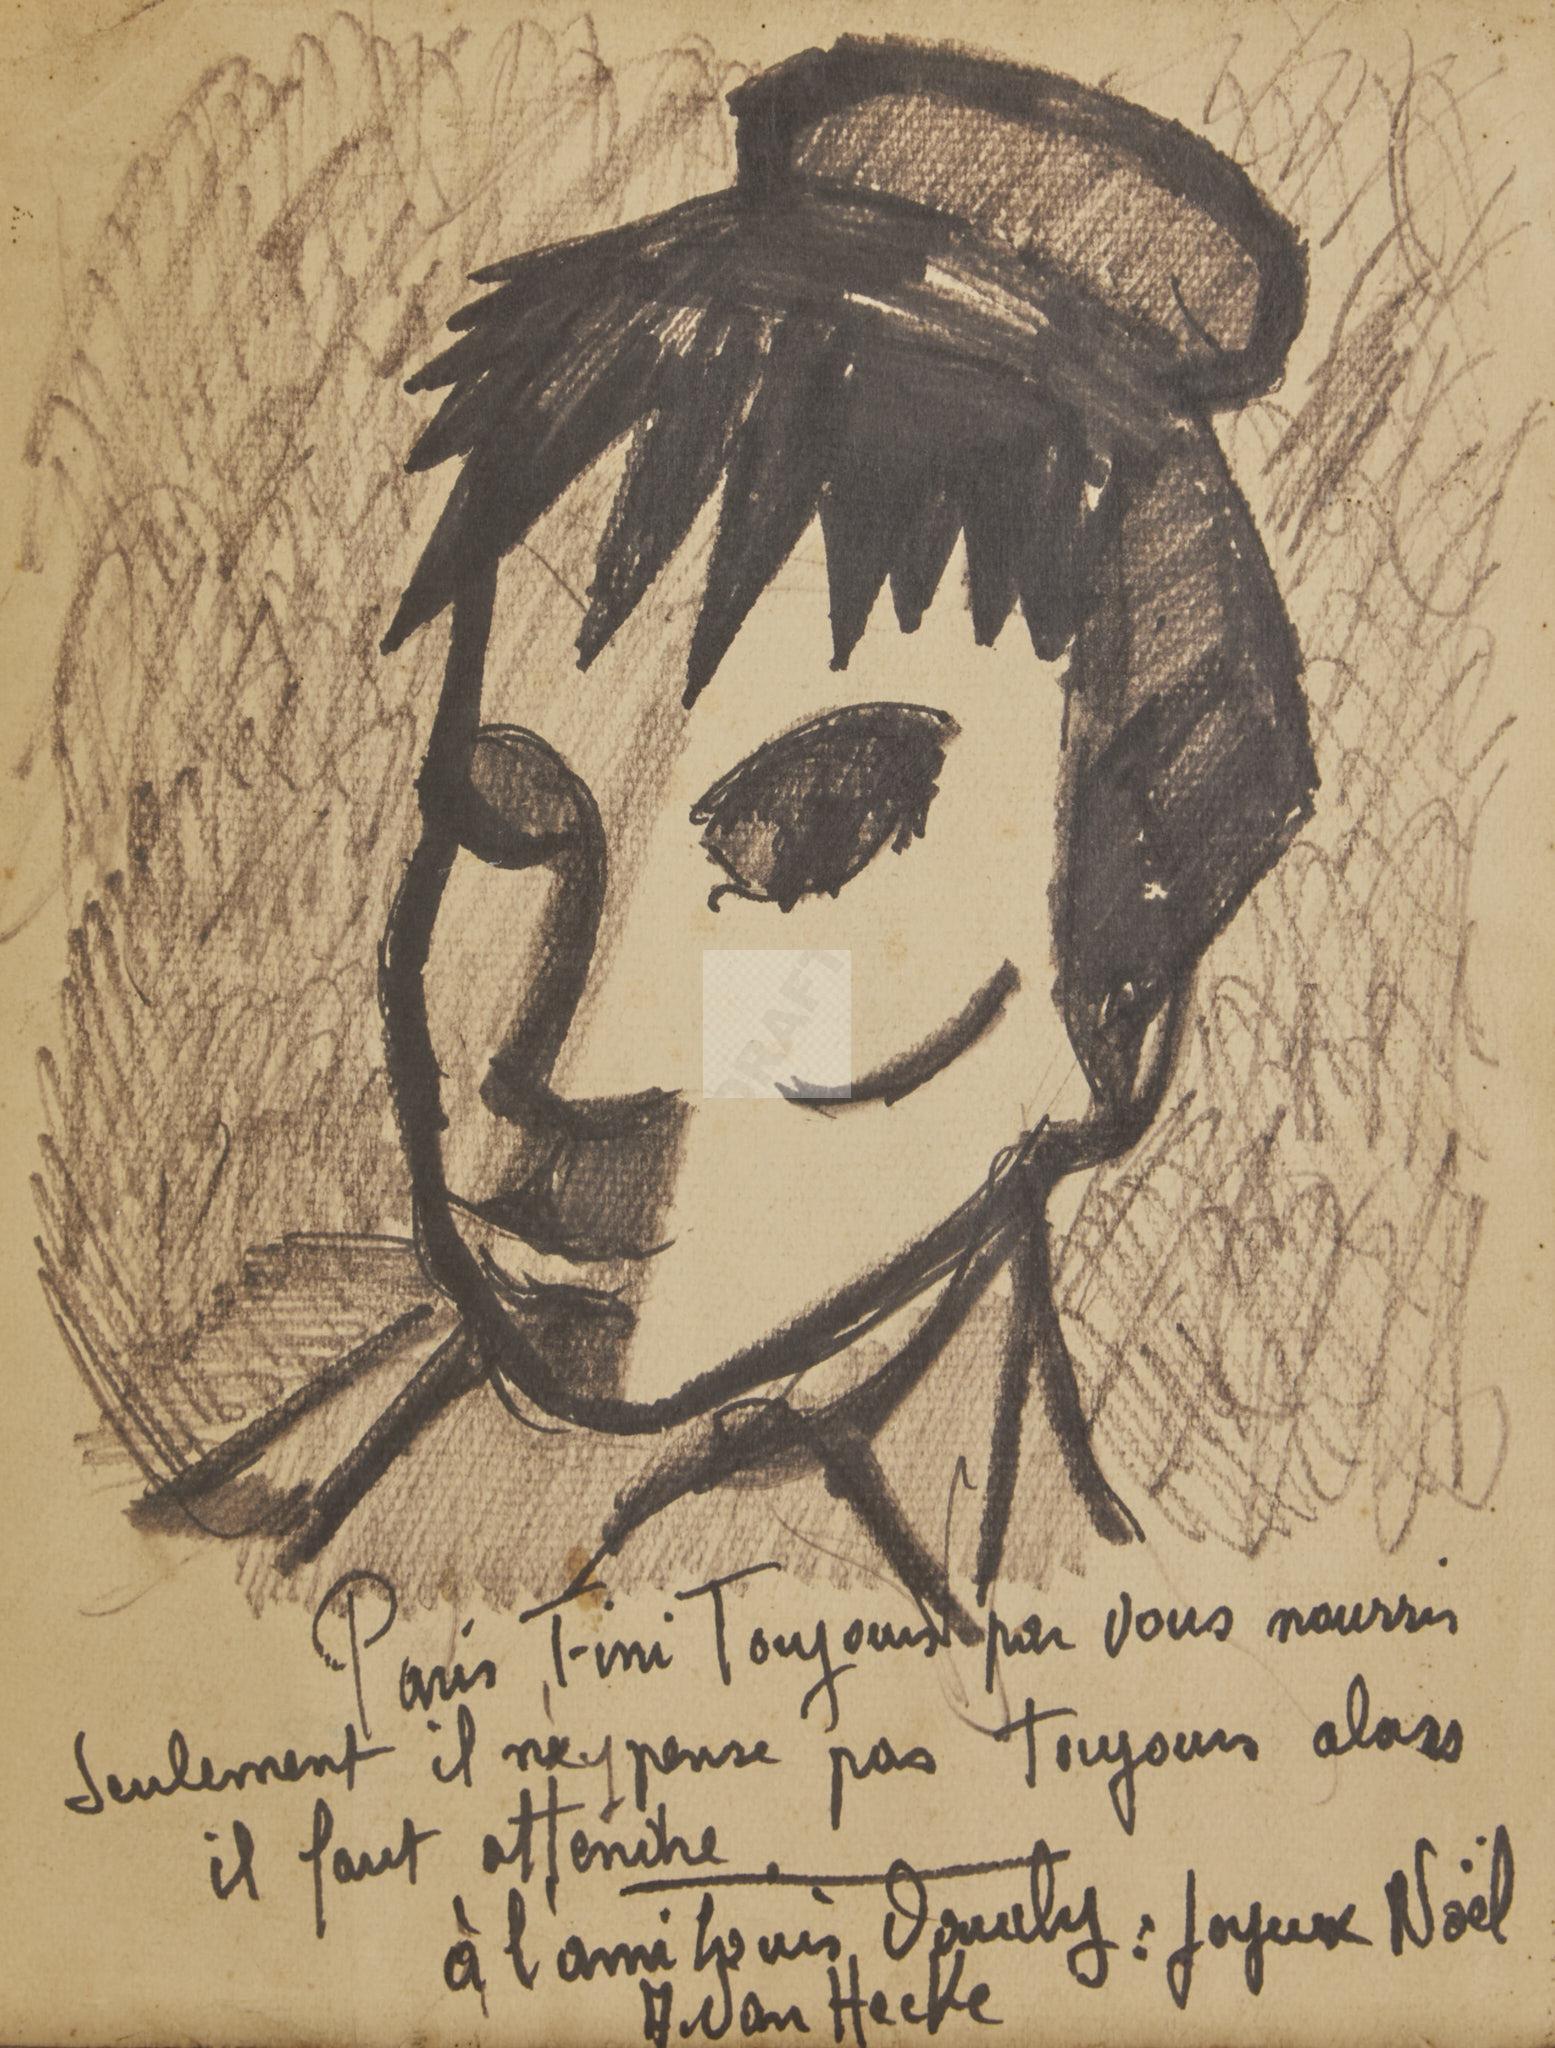 DRAFT
Paris Fini Toujours par vous nourris
Seulement il n'éxypense pas Toujours alors
il faut attendre
à l'ami Louis : Joyeux Noël
Van Hecke